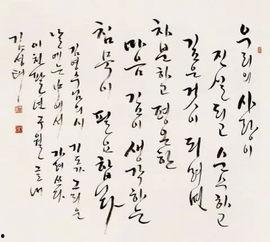 우리의 사랑이
진실되고 소중하고
깊은 것이 되려면
차분하고 평온한
마음 깊이 생각하는
침묵이 필요합니다
김연수님의 시 기도가 그리운
날에는 중에서 가려 쓰다
이천팔년 구월